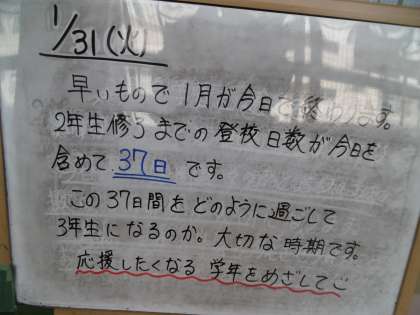 1/31(火)
早いもので1月が今日で終わります。
2年生修了までの登校日数が今日を
含めて、37日です。
この37日間をどのように過ごして
3年生になるのか。大切な時期です。
応援したくなる学年をめざして